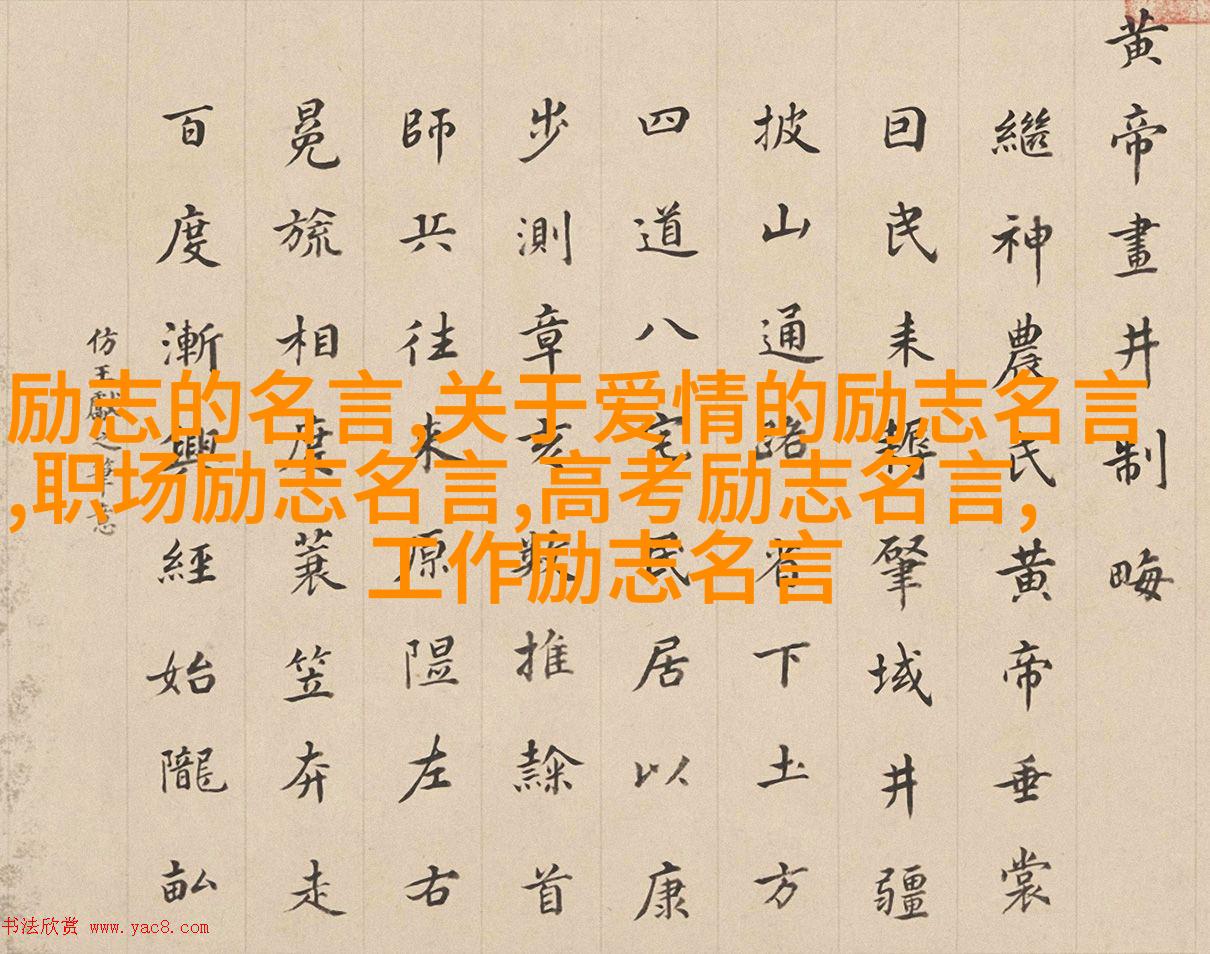 黃帝畫井制畮
繼神農氏黃帝垂裳
囙民耒耨肇域井疆
披山通路省下土方
四道八宅民居以康
步測章亥數推隸首
師兵往来原隰左右
冕旒相度蓑笠奔走
百度漸興經始隴畝
仿王獻之筆意
励志的名言,关于爱情的励志名言
,职场励志名言,高考励志名言,
工作励志名言
书法欣赏 www.yac8.com